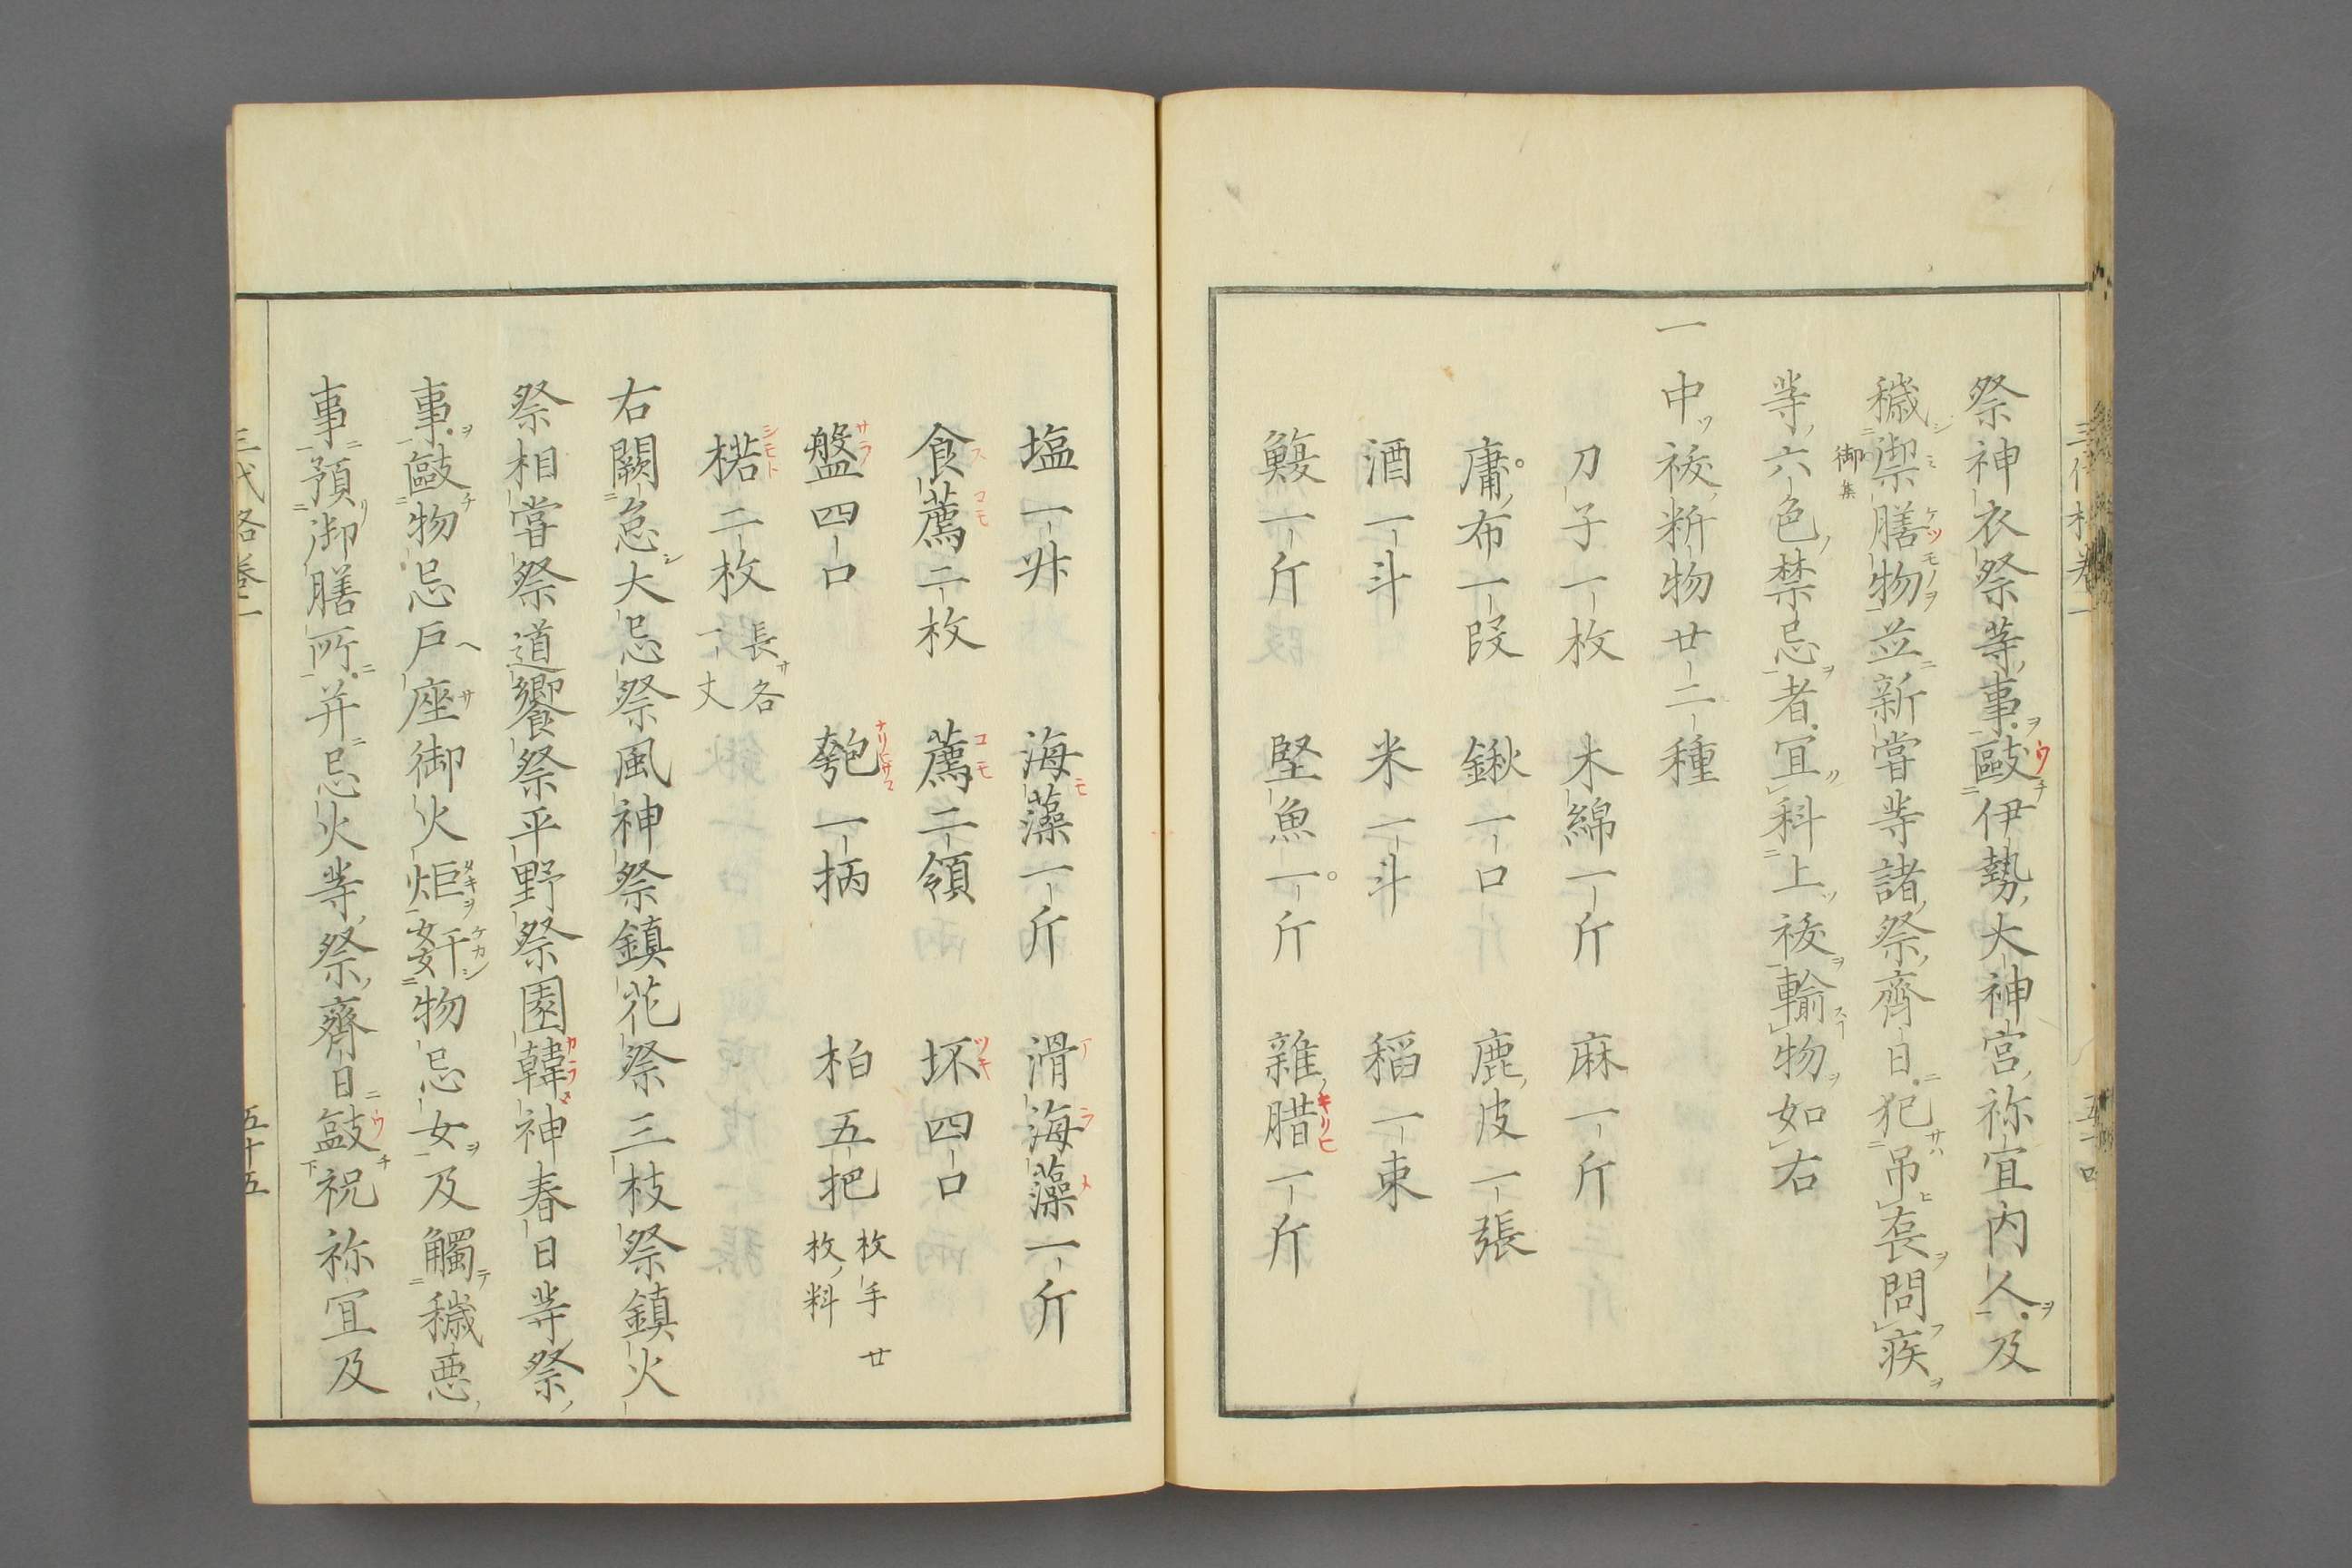 祭神衣祭等事敺伊勢大神宮祢宜内人及
穢禦膳物並新嘗等諸祭齊日犯吊喪問疾
御集
等六色禁忌者宜科上祓輸物如右
一中祓䉼物廿二種
刀子一枚 木綿一斤 麻一斤
庸布一段 鍬一口 鹿皮一張
酒一斗 米一斗 稻一束
鰒一斤 堅魚一斤 雜腊一斤
塩一升 海藻一斤 滑海藻一斤
食薦二枚 薦二領 坏四口
盤四口 匏一柄 柏五把 枚手廿枚料
楉二枚 長各一丈
右闕怠大忌祭風神祭鎮花祭三枝祭鎮火
祭相嘗祭道饗祭平野祭園韓神春日等祭
事敺物忌戸座御火炬姧物忌女及觸穢悪
事預御膳所并忌火等祭齊日敺祝祢宜及
三代格卷一 五十五